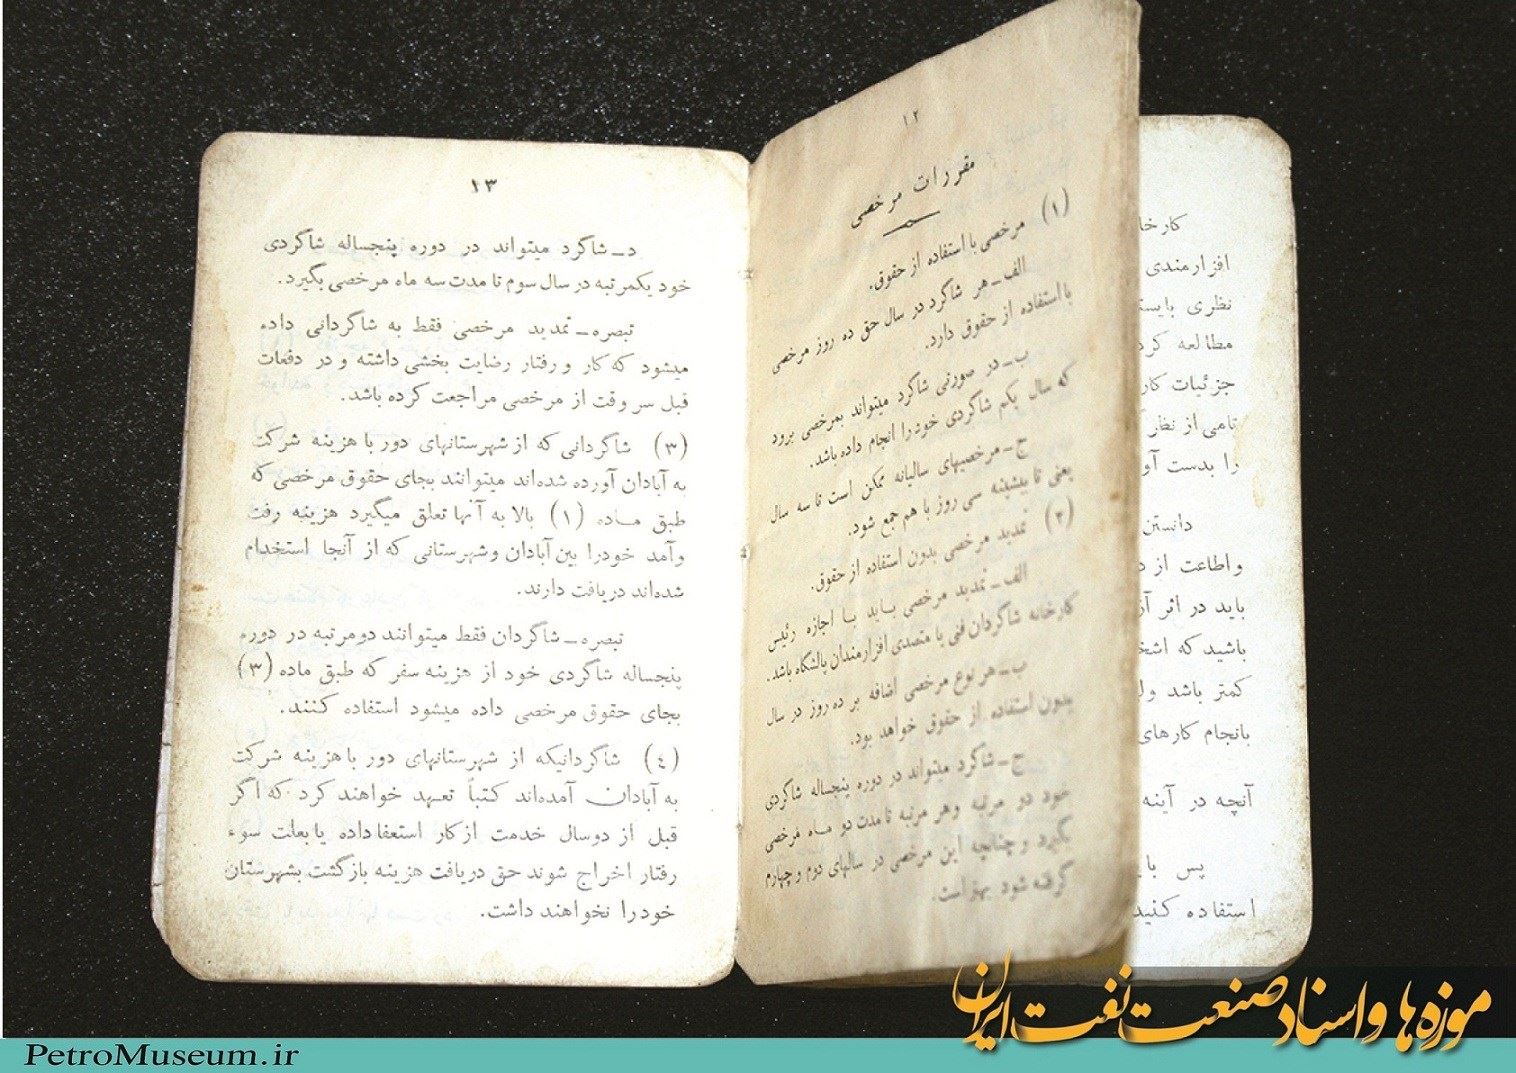 ۱۲
مقررات مرخصی
(۱) مرخصی با استفاده از حقوق.
الف ـ هر شاگرد در سال حق ده روز مرخصی
با استفاده از حقوق دارد.
ب ـ در صورتی شاگرد میتواند بمرخصی برود
که سال یکم شاگردی خود را انجام داده باشد.
ج ـ مرخصیهای سالیانه ممکن است تا سه سال
یعنی تا بیشینه سی روز با هم جمع شود.
(۲) تمدید مرخصی بدون استفاده از حقوق.
الف ـ تمدید مرخصی باید با اجازه رئیس
کارخانه شاگردان فنی یا متصدی افزارمندان پالشگاه باشد.
ب ـ هر نوع مرخصی اضافه بر ده روز در سال
بدون استفاده از حقوق خواهد بود.
ج ـ شاگرد میتواند در دوره پنجساله شاگردی
خود دو مرتبه و هر مرتبه تا مدت دو ماه مرخصی
بگیرد و چنانچه این مرخصی در سالهای دوم و چهارم
گرفته شود بهتر است.
۱۳
د ـ شاگرد میتواند در دوره پنجساله شاگردی
خود یکمرتبه در سال سوم تا مدت سه ماه مرخصی بگیرد.
تبصره ـ تمدید مرخصی فقط به شاگردانی داده
میشود که کار و رفتار رضایت بخشی داشته و در دفعات
قبل سر وقت از مرخصی مراجعت کرده باشد.
(۳) شاگردانی که از شهرستانهای دور با هزینه شرکت
به آبادان آورده شده‌اند میتوانند بجای حقوق مرخصی که
طبق ماده (۱) بالا به آنها تعلق میگیرد هزینه رفت
و آمد خود را بین آبادان و شهرستانی که از آنجا استخدام
شده‌اند دریافت دارند.
تبصره ـ شاگردان فقط میتوانند دو مرتبه در دوره
پنجساله شاگردی خود از هزینه سفر که طبق ماده (۳)
بجای حقوق مرخصی داده میشود استفاده کنند.
(٤) شاگردانیکه از شهرستانهای دور با هزینه شرکت
به آبادان آمده‌اند کتباً تعهد خواهند کرد که اگر
قبل از دو سال خدمت از کار استعفا داده یا بعلت سوء
رفتار اخراج شوند حق دریافت هزینه بازگشت بشهرستان
خود را نخواهند داشت.
افزارمندی
نظری
مطالعه
جزئیات
تامی از نظر
را بدست
دانستن
و اطاعت از
باید در اثر
باشید که
کمتر باشد
بانجام کارهای
آنچه در آینه
پس
استفاده کنید
موزه‌ها و اسناد صنعت نفت ایران
PetroMuseum.ir